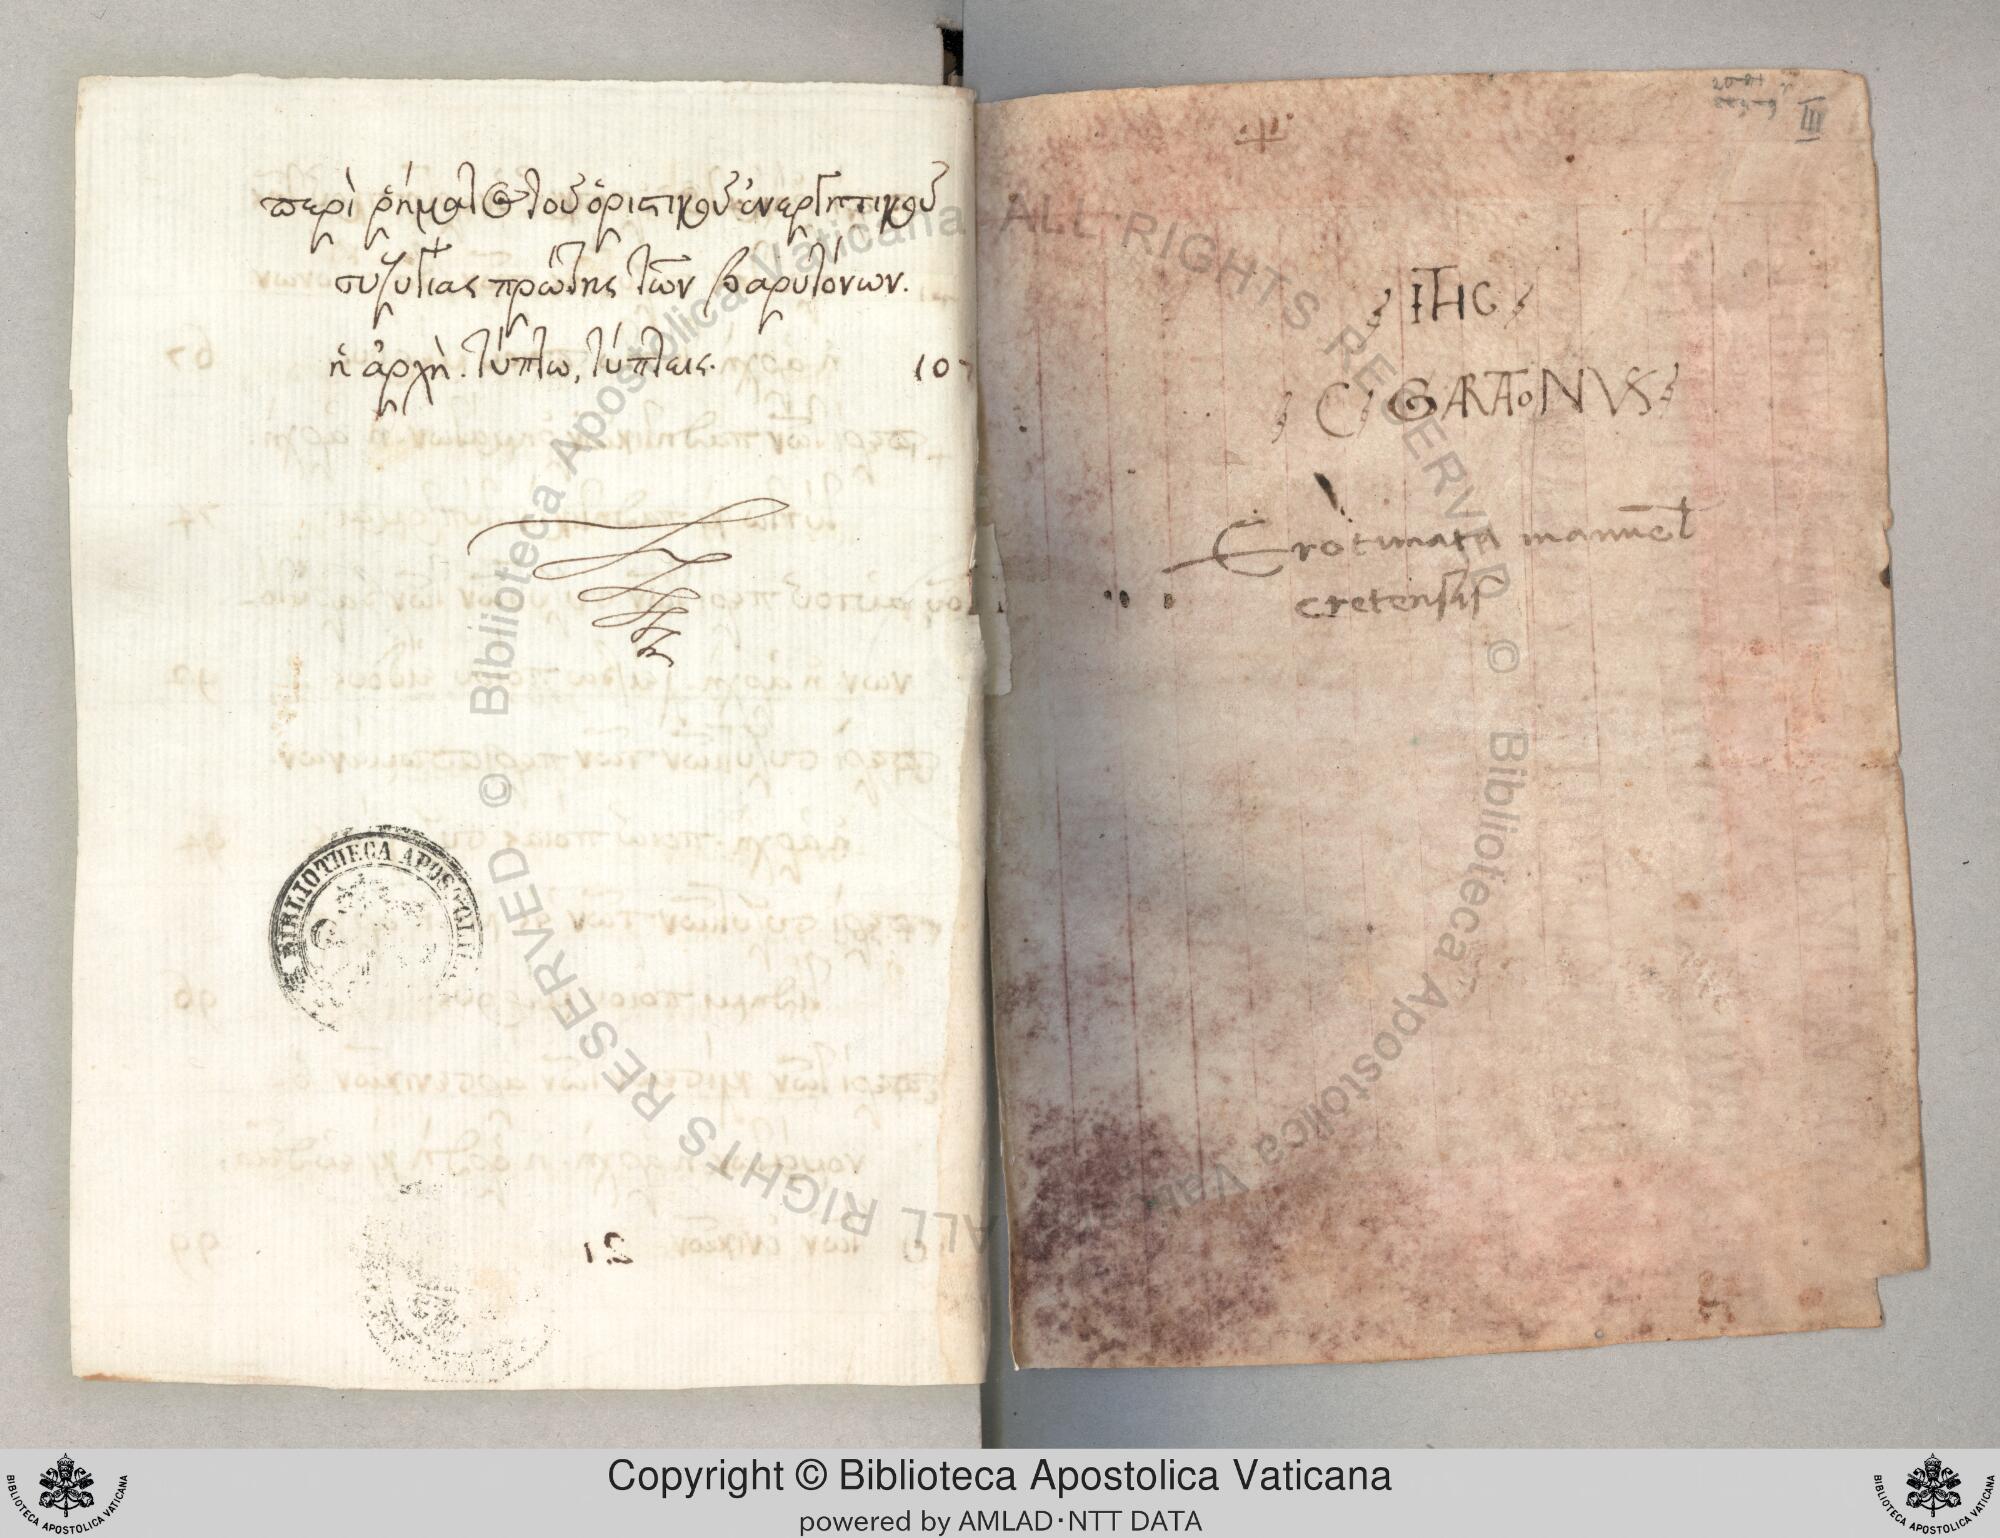 περὶ ῥήματος τοῦ ὁριστικοῦ ἐνεργητικοῦ
συζυγίας πρώτης τῶν βαρυτόνων.
ἡ ἀρχὴ. τύπτω, τύπτεις. 107
BIBLIOTHECA APOSTOLI
21
III
ΙΗϹ
C GARATONVS
Erotimata manuel
cretensis
© Biblioteca Apostolica Vaticana ALL RIGHTS RESERVED © Biblioteca Apostolica Vaticana ALL RIGHTS RESERVED
Copyright © Biblioteca Apostolica Vaticana
powered by AMLAD·NTT DATA
BIBLIOTECA APOSTOLICA VATICANA
BIBLIOTECA APOSTOLICA VATICANA